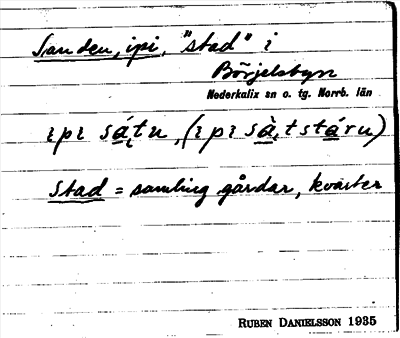 Sanden, ipi, "stad" i
Börjelsbyn
Nederkalix sn o. tg. Norrb. län
ɩpɩ sátu, (ɩpɩ sàtstáru)
stad = samling gårdar, kvarter
RUBEN DANIELSSON 1935